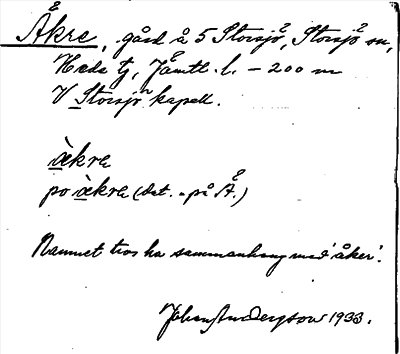 Åkre, gård å 5 Storsjö, Storsjö sn,
Hede tg, Jämtl. l. – 200 m
V Storsjö kapell.
àkre
po àkre (dat. "på Å.)
Namnet tros ha sammanhang med 'åker'.
Johan Andersson 1933.